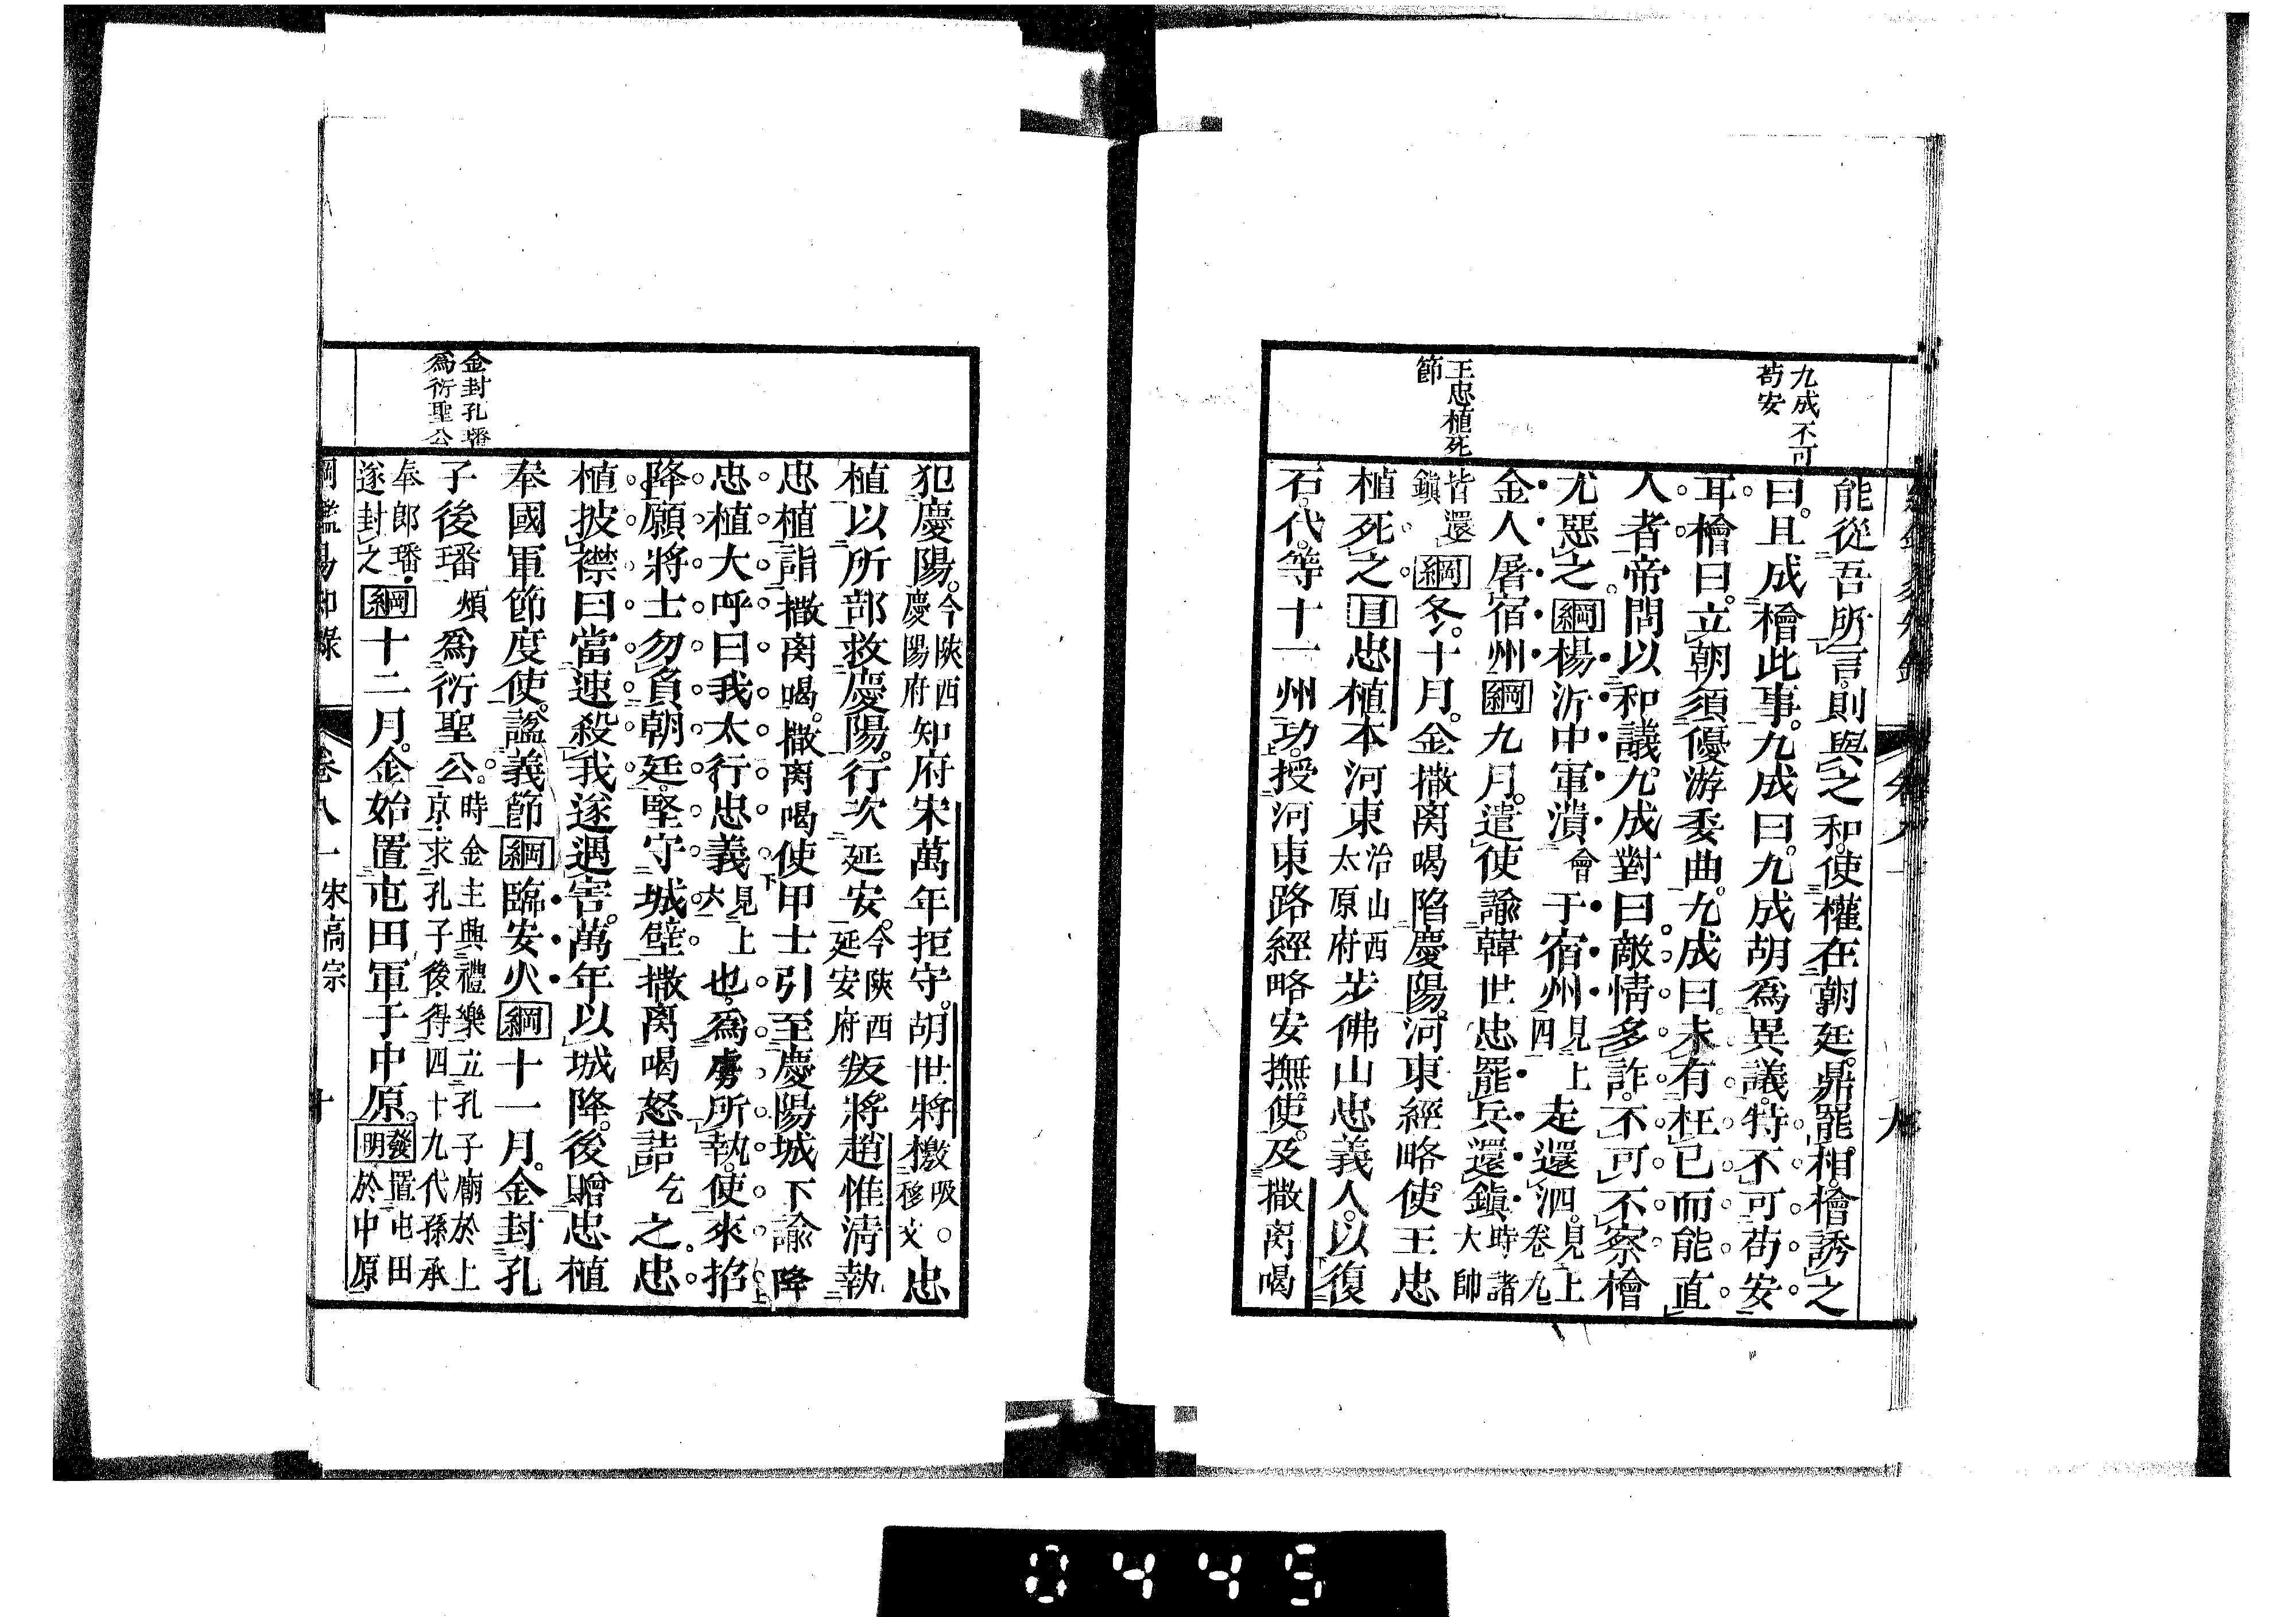 九成不可
苟安
王忠植死
節
能從吾所言則與之和使權在朝廷鼎罷相檜誘之
曰且成檜此事九成曰九成胡爲異議特不可苟安
耳檜曰立朝須優游委曲九成曰未有枉已而能直
人者帝問以和議九成對曰敵情多詐不可不察檜
尤惡之綱楊沂中軍潰會于宿州見上四走還泗見上卷九
金人屠宿州綱九月遣使諭韓世忠罷兵還鎮時諸大帥
皆還鎮綱冬十月金撒离喝陷慶陽河東經略使王忠
植死之目忠植本河東治山西太原府步佛山忠義人以復
石代等十一州功授河東路經略安撫使及撒离喝
金封孔璠
爲衍聖公
犯慶陽今陝西慶陽府知府宋萬年拒守胡世將檄吸移文忠
植以所部救慶陽行次延安今陝西延安府叛將趙惟清執
忠植詣撒离喝撒离喝使甲士引至慶陽城下諭降
忠植大呼曰我太行忠義見上六也爲虜所執使來招
降願將士勿負朝廷堅守城壁撒离喝怒詰乞之忠
植披襟曰當速殺我遂遇害萬年以城降後贈忠植
奉國軍節度使謚義節綱臨安火綱十一月金封孔
子後璠煩爲衍聖公時金主興禮樂立孔子廟於上京求孔子後得四十九代孫承
奉郎璠遂封之綱十二月金始置屯田軍于中原發明置屯田於中原
綱鑑易知錄 卷八一 宋高宗 十